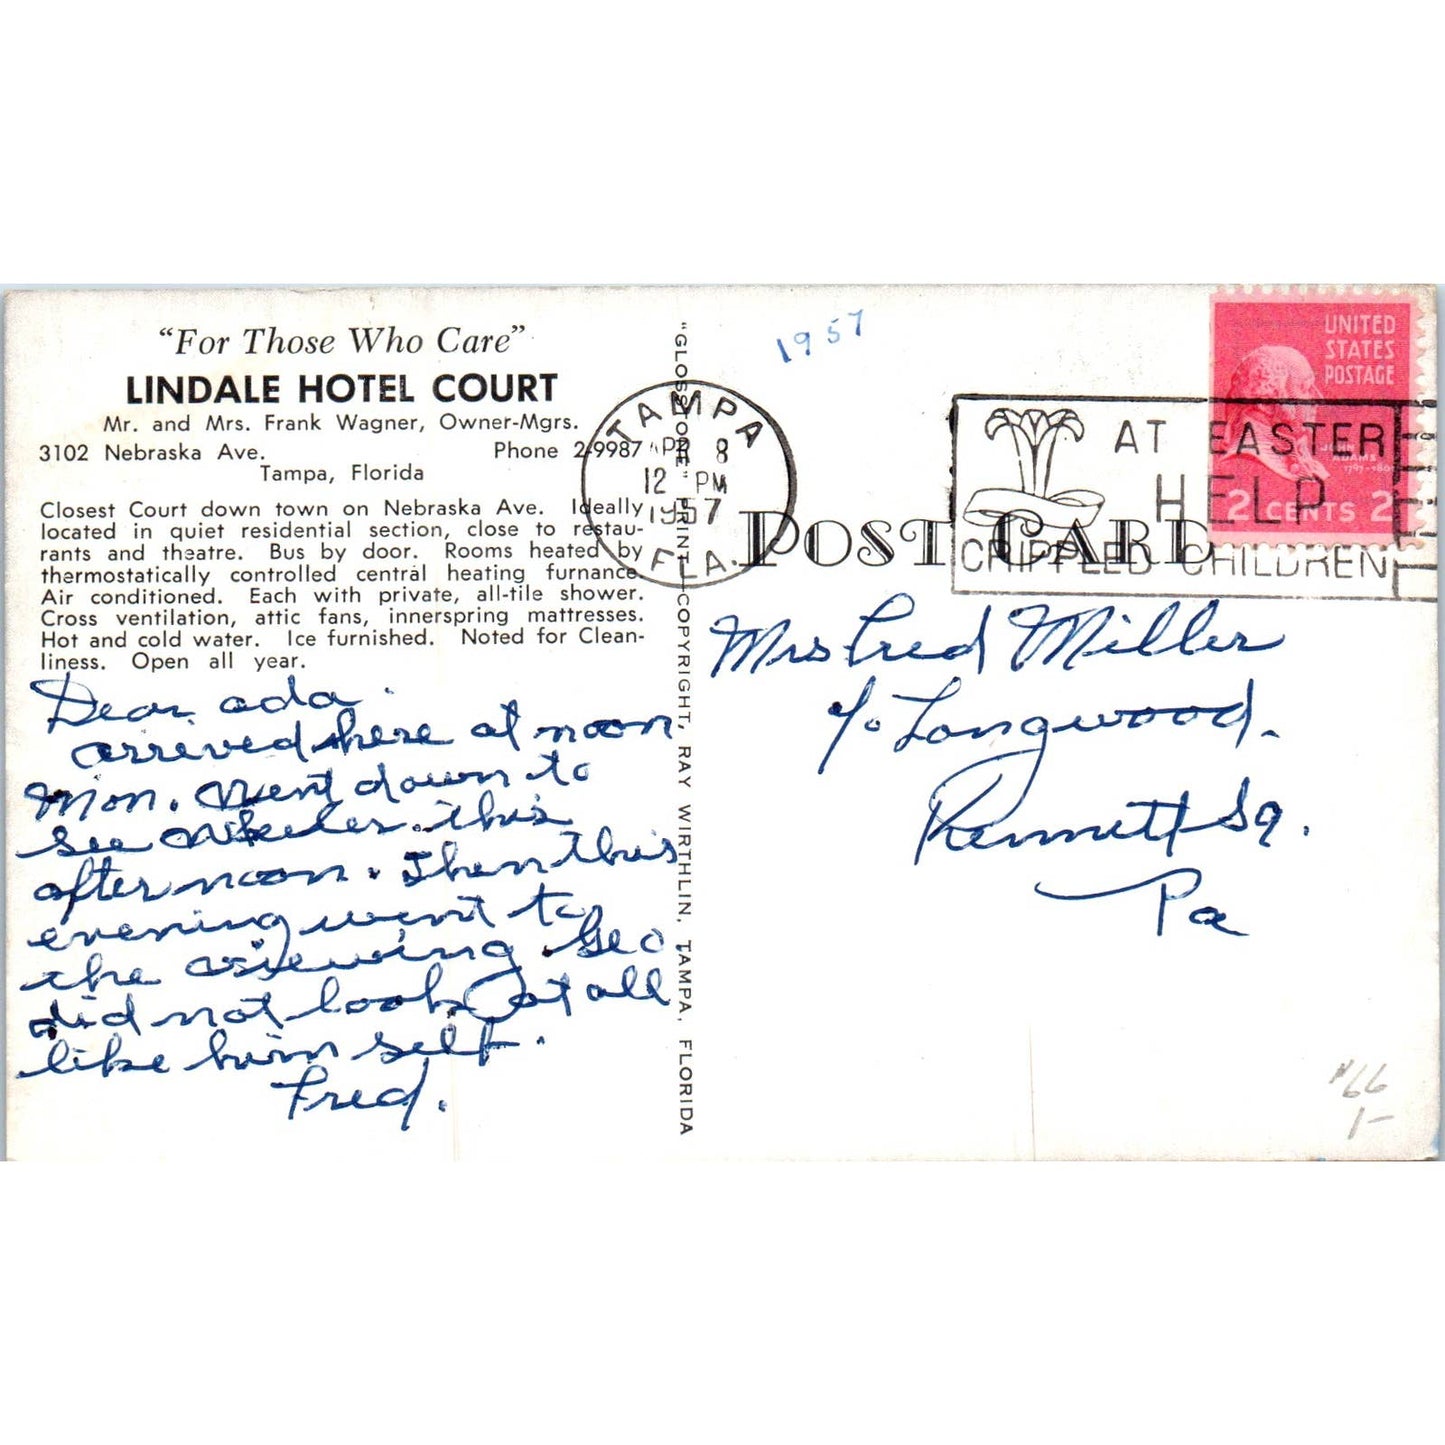 "For Those Who Care"
LINDALE HOTEL COURT
Mr. and Mrs. Frank Wagner, Owner-Mgrs.
3102 Nebraska Ave. Phone 2-9987
Tampa, Florida
Closest Court down town on Nebraska Ave. Ideally
located in quiet residential section, close to restau-
rants and theatre. Bus by door. Rooms heated by
thermostatically controlled central heating furnance.
Air conditioned. Each with private, all-tile shower.
Cross ventilation, attic fans, innerspring mattresses.
Hot and cold water. Ice furnished. Noted for Clean-
liness. Open all year.
Dear ada.
arrived here at noon
Mon. Went down to
see Wheeler. this
afternoon. Then this
evening went to
the viewing. Geo
did not look at all
like him self.
Fred.
"GLOSSTONE" PRINT COPYRIGHT, RAY WIRTHLIN, TAMPA, FLORIDA
1957
TAMPA
APR 8
12 PM
1957
FLA.
AT EASTER
HELP
CRIPPLED CHILDREN
UNITED
STATES
POSTAGE
JOHN
ADAMS
1797-1801
2 CENTS 2
POST CARD
Mrs Fred Miller
c/o Longwood.
Kennett Sq.
Pa
#66
1-